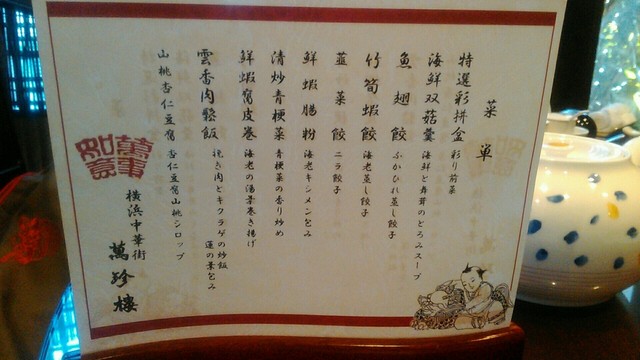 菜単
特選彩拼盆 彩り前菜
海鮮双菇羹 海鮮と舞茸のとろみスープ
魚翅餃 ふかひれ蒸し餃子
竹筍蝦餃 海老蒸し餃子
韮菜餃 ニラ餃子
鮮蝦腸粉 海老チョンファン包み
清炒青梗菜 青梗菜の香り炒め
鮮蝦腐皮巻 海老の湯葉巻き揚げ
雲香肉鬆飯 挽き肉とキクラゲの炒飯
蓮の葉包み
山桃杏仁豆腐 杏仁豆腐山桃シロップ
横浜中華街
萬珍樓